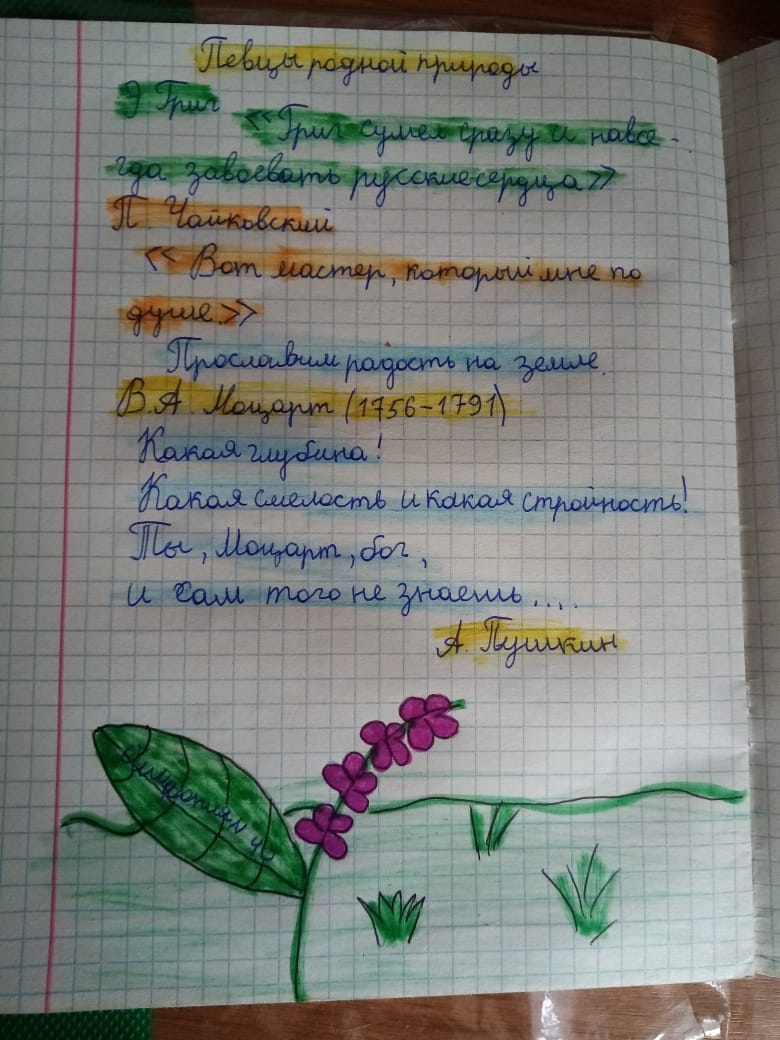 Певцы родной природы
Э Григ
<< Григ сумел сразу и навсе-
гда завоевать русские сердца >>
П. Чайковский
<< Вот мастер, который мне по
душе.>>
Прославим радость на земле.
В.А. Моцарт (1756-1791)
Какая глубина!
Какая смелость и какая стройность!
Ты, Моцарт, бог,
и сам того не знаешь....
А. Пушкин
Симфония
40